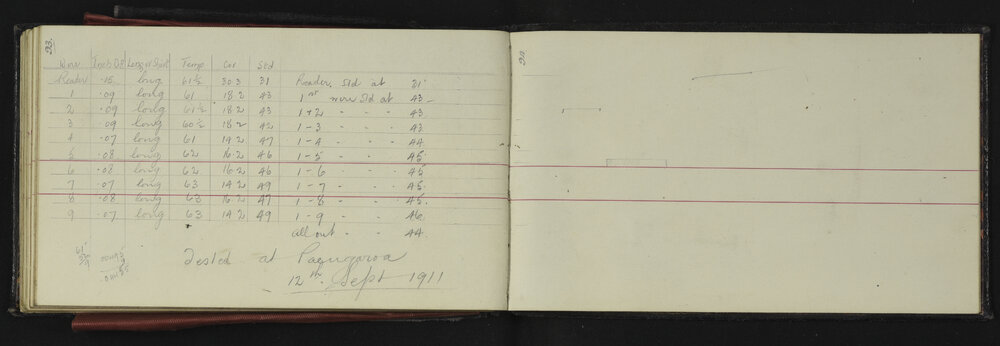 23.
Wire | Inch D.P | Long or Short | Temp | Cor | Std
Reader .15 long 61½ 30.3 31 Reader, Std at 31
1 .09 long 61 18.2 43 1st wire Std at 43
2 .09 long 61½ 18.2 43 1+2 - - - 43
3 .09 long 60½ 18.2 42 1-3 - - - 43
4 .07 long 61 14.2 47 1-4 - - - 44
5 .08 long 62 16.2 46 1-5 - - - 45
6 .08 long 62 16.2 46 1-6 - - - 45
7 .07 long 63 14.2 49 1-7 - - - 45
8 .08 long 63 16.2 47 1-8 - - - 45
9 .07 long 63 14.2 49 1-9 - - - 46
all out - - 44
Tested at Paengaroa
12th Sept 1911